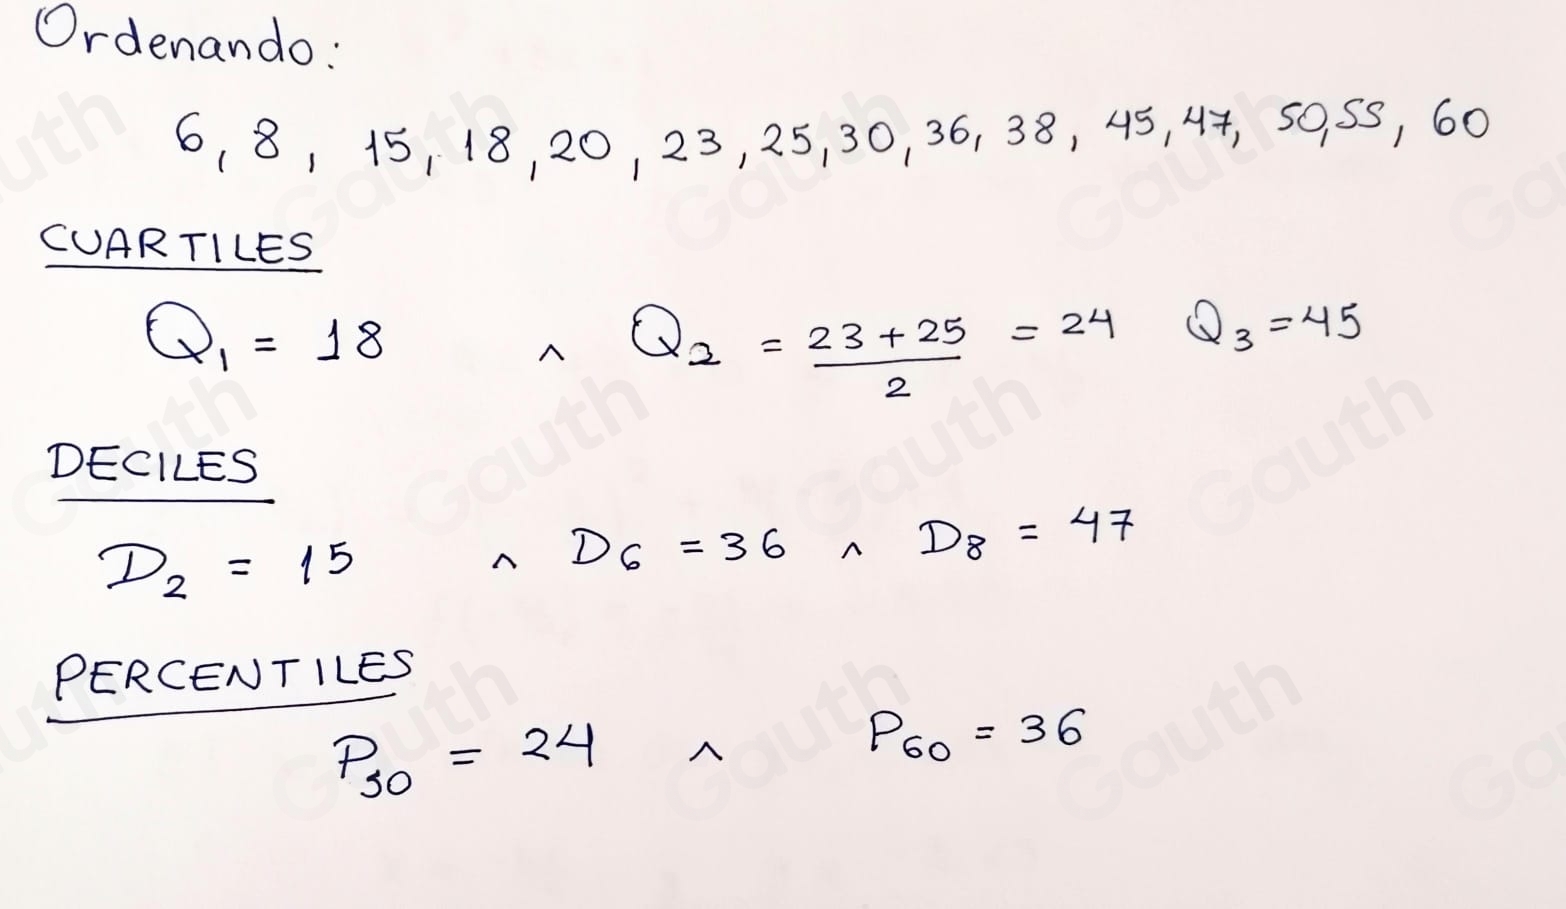 Ordenando:
6, 8, 15, 18, 20, 23, 25, 30, 36, 38, 45, 47, 50, 55, 60
CUARTILES
Q₁ = 18 ^ Q₂ = (23 + 25)/2 = 24 Q₃ = 45
DECILES
D₂ = 15 ^ D₆ = 36 ^ D₈ = 47
PERCENTILES
P₅₀ = 24 ^ P₆₀ = 36
Gauth